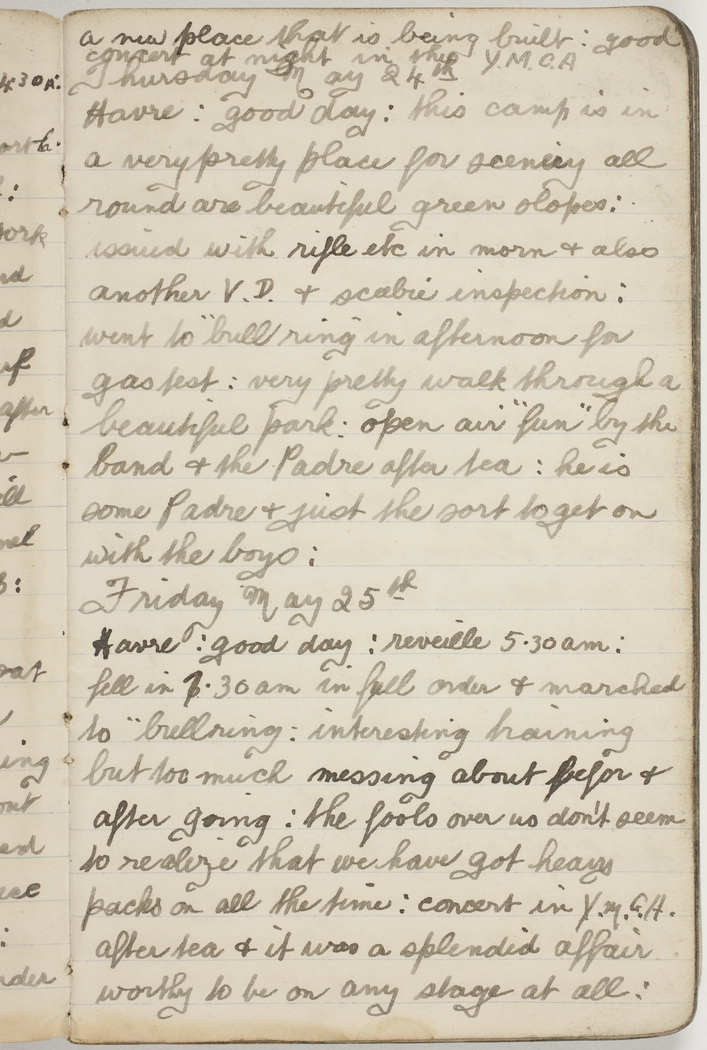 a new place that is being built : good
concert at night in the Y.M.C.A
Thursday May 24th
Havre : good day : this camp is in
a very pretty place for scenery all
round are beautiful green slopes :
issued with rifle etc in morn & also
another V.D. & scabie inspection :
went to "bull ring in afternoon for
gas test : very pretty walk through a
beautiful park : open air "fun" by the
band & the Padre after tea : he is
some Padre & just the sort to get on
with the boys :
Friday May 25th
Havre : good day : reveille 5.30 am :
fell in 7.30 am in full order & marched
to "bullring : interesting training
but too much messing about befor &
after going : the fools over us don't seem
to realize that we have got heavy
packs on all the time : concert in Y.M.C.A.
after tea & it was a splendid affair
worthy to be on any stage at all :
4.30 A:
work
after